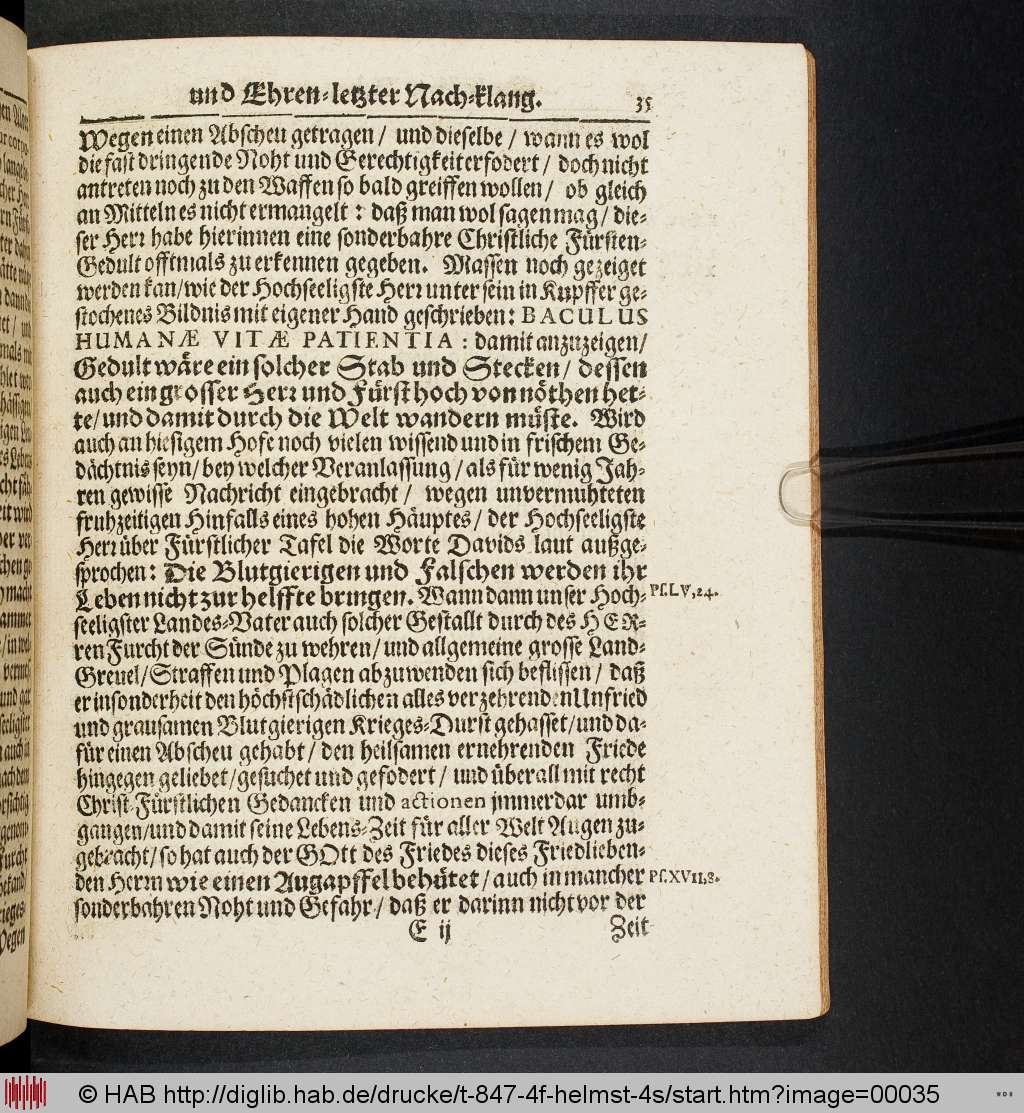 und Ehren-letzter Nach-klang. 35
Wegen einen Abscheu getragen / und dieselbe / wann es wol
die fast dringende Noht und Gerechtigkeit erfodert / doch nicht
antreten noch zu den Waffen so bald greiffen wollen / ob gleich
an Mitteln es nicht ermangelt : daß man wol sagen mag / die-
ser Herr habe hierinnen eine sonderbahre Christliche Fürsten-
Gedult offtmals zu erkennen gegeben. Massen noch gezeiget
werden kan/wie der Hochseeligste Herr unter sein in Kupffer ge-
stochenes Bildnis mit eigener Hand geschrieben: BACULUS
HUMANÆ VITÆ PATIENTIA : damit anzuzeigen/
Gedult wäre ein solcher Stab und Stecken/ dessen
auch ein grosser Herr und Fürst hoch von nöthen het-
te/und damit durch die Welt wandern müste. Wird
auch an hiesigem Hofe noch vielen wissend und in frischem Ge-
dächtnis seyn/ bey welcher Veranlassung / als für wenig Jah-
ren gewisse Nachricht eingebracht / wegen unvermuhteten
fruhzeitigen Hinfalls eines hohen Häuptes / der Hochseeligste
Herr über Fürstlicher Tafel die Worte Davids laut außge-
sprochen: Die Blutgierigen und Falschen werden ihr
Leben nicht zur helffte bringen. Wann dann unser Hoch- Ps. LV, 24.
seeligster Landes-Vater auch solcher Gestallt durch des HER-
ren Furcht der Sünde zu wehren / und allgemeine grosse Land-
Greuel/Straffen und Plagen abzuwenden sich beflissen / daß
er insonderheit den höchstschädlichen alles verzehrenden Unfried
und grausamen Blutgierigen Krieges-Durst gehasset/und da-
für einen Abscheu gehabt / den heilsamen ernehrenden Friede
hingegen geliebet/gesuchet und gefodert / und überall mit recht
Christ-Fürstlichen Gedancken und actionen jmmerdar umb-
gangen/und damit seine Lebens-Zeit für aller Welt Augen zu-
gebracht/ so hat auch der GOtt des Friedes dieses Friedlieben-
den Herrn wie einen Augapffel behütet / auch in mancher Ps. XVII, 8.
sonderbahren Noht und Gefahr / daß er darinn nicht vor der
E ij Zeit
© HAB http://diglib.hab.de/drucke/t-847-4f-helmst-4s/start.htm?image=00035